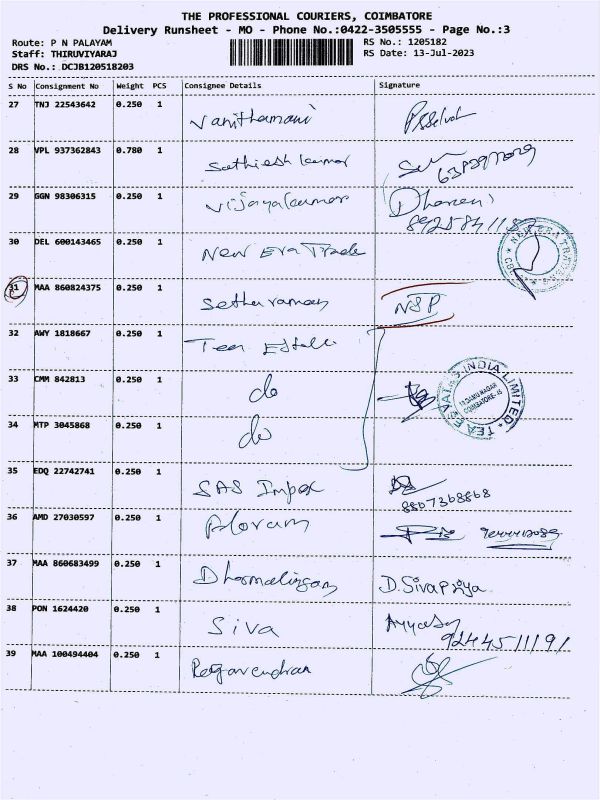 THE PROFESSIONAL COURIERS, COIMBATORE
Delivery Runsheet - MO - Phone No.:0422-3505555 - Page No.:3
Route: P N PALAYAM RS No.: 1205182
Staff: THIRUVIYARAJ RS Date: 13-Jul-2023
DRS No.: DCJB120518203
S No Consignment No Weight PCS Consignee Details Signature
27 TNJ 22543642 0.250 1 Vanithamani
28 VPL 937362843 0.780 1 Sathiesh kumar
29 GGN 98306315 0.250 1 Vijayakumar Dharani
30 DEL 600143465 0.250 1 New Era Trade
31 MAA 860824375 0.250 1 Sethuraman NSP
32 AWY 1818667 0.250 1 Tea
33 CMM 842813 0.250 1 do
TEA ESVALS INDIA LIMITED
COIMBATORE
34 MTP 3045868 0.250 1 do
35 EDQ 22742741 0.250 1 SAS Impex
8807368868
36 AMD 27030597 0.250 1
37 MAA 860683499 0.250 1 Dharmalingam D. Sivapriya
38 PON 1624420 0.250 1 Siva
9244511191
39 MAA 100494404 0.250 1 Ragavendran